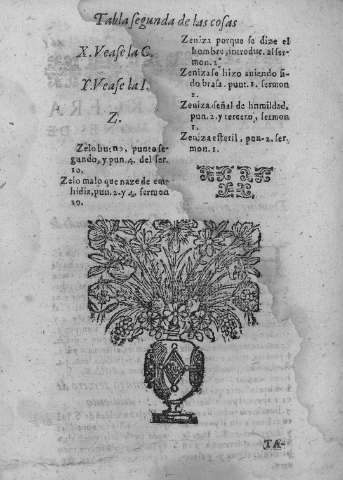 Tabla segunda de las cosas
X. Vease la C.
Y. Vease la I.
Z.
Zelo bueno, punto se-
gundo, y pun. 4. del ser.
10.
Zelo malo que naze de em-
bidia, pun. 2. y 4. sermon
10.
Zeniza porque se dize el
hombre, introduc. al ser-
mon. 1.
Zeniza se hizo auiendo si-
do brasa. punt. 1. sermon
1.
Zeniza señal de humildad,
pun. 2. y tercero, sermon
1.
Zeniza esteril, pun. 2. ser.
mon. 1.
TA-